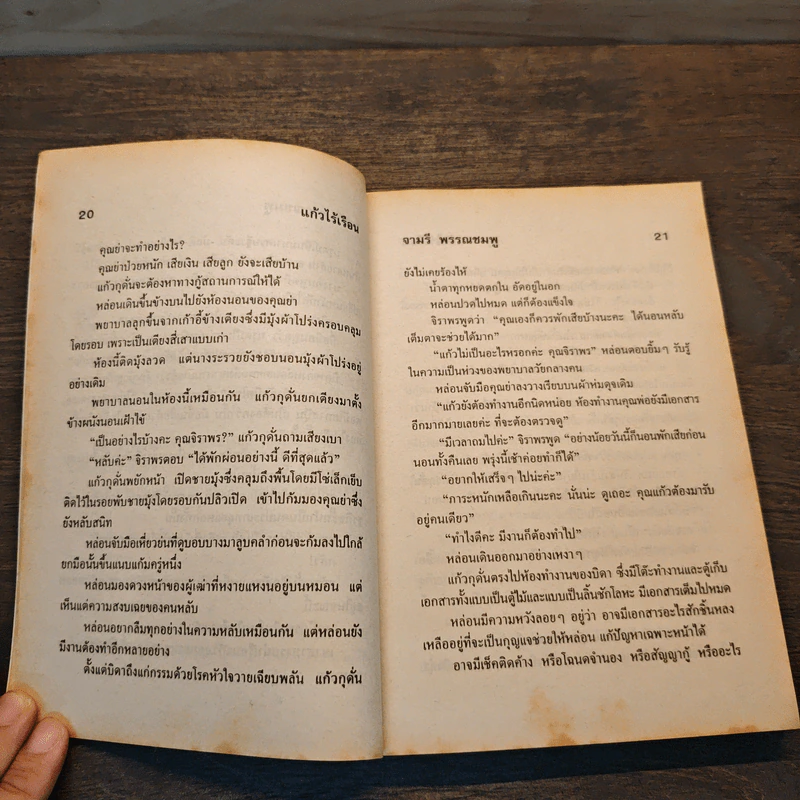 20
แก้วไร้เรือน
คุณย่าจะทำอย่างไร?
คุณย่าป่วยหนัก เสียเงิน เสียลูก ยังจะเสียบ้าน
แก้วกุดั่นจะต้องหาทางกู้สถานการณ์ให้ได้
หล่อนเดินขึ้นข้างบนไปยังห้องนอนของคุณย่า
พยาบาลลุกขึ้นจากเก้าอี้ข้างเตียงซึ่งมีมุ้งผ้าโปร่งครอบคลุม
โดยรอบ เพราะเป็นเตียงสี่เสาแบบเก่า
ห้องนี้ติดมุ้งลวด แต่นางระรวยยังชอบนอนมุ้งผ้าโปร่งอยู่
อย่างเดิม
พยาบาลนอนในห้องนี้เหมือนกัน แก้วกุดั่นยกเตียงมาตั้ง
ข้างผนังนอนเฝ้าไข้
“เป็นอย่างไรบ้างคะ คุณจิราพร?” แก้วกุดั่นถามเสียงเบา
“หลับค่ะ” จิราพรตอบ “ได้พักผ่อนอย่างนี้ ดีที่สุดแล้ว”
แก้วกุดั่นพยักหน้า เปิดชายมุ้งซึ่งคลุมถึงพื้นโดยมีโซ่เล็กเย็บ
ติดไว้ในรอยพับชายมุ้งโดยรอบกันปลิวเปิด เข้าไปก้มมองคุณย่าซึ่ง
ยังหลับสนิท
หล่อนจับมือเหี่ยวย่นที่ดูบอบบางมาลูบคลำก่อนจะก้มลงไปใกล้
ยกมือนั้นขึ้นแนบแก้มครู่หนึ่ง
หล่อนมองดวงหน้าของผู้เฒ่าที่หงายแหงนอยู่บนหมอน แต่
เห็นแต่ความสงบเฉยของคนหลับ
หล่อนอยากลืมทุกอย่างในความหลับเหมือนกัน แต่หล่อนยัง
มีงานต้องทำอีกหลายอย่าง
ตั้งแต่บิดาถึงแก่กรรมด้วยโรคหัวใจวายเฉียบพลัน แก้วกุดั่น
จามรี พรรณชมพู
21
ยังไม่เคยร้องไห้
น้ำตาทุกหยดตกใน อัดอยู่ในอก
หล่อนปวดไปหมด แต่ก็ต้องแข็งใจ
จิราพรพูดว่า “คุณเองก็ควรพักเสียบ้างนะคะ ได้นอนหลับ
เต็มตาจะช่วยได้มาก”
“แก้วไม่เป็นอะไรหรอกค่ะ คุณจิราพร” หล่อนตอบยิ้มๆ รับรู้
ในความเป็นห่วงของพยาบาลวัยกลางคน
หล่อนจับมือคุณย่าลงวางเรียบบนผ้าห่มดุจเดิม
“แก้วยังต้องทำงานอีกนิดหน่อย ห้องทำงานคุณพ่อยังมีเอกสาร
อีกมากมายเลยค่ะ ที่จะต้องตรวจดู”
“มีเวลาถมไปค่ะ” จิราพรพูด “อย่างน้อยวันนี้ก็นอนพักเสียก่อน
นอนทั้งคืนเลย พรุ่งนี้เช้าค่อยทำก็ได้”
“อยากให้เสร็จๆ ไปน่ะค่ะ”
“ภาระหนักเหลือเกินนะคะ นั่นน่ะ ดูเถอะ คุณแก้วต้องมารับ
อยู่คนเดียว”
“ทำไงดีคะ มีงานก็ต้องทำไป”
หล่อนเดินออกมาอย่างเหงาๆ
แก้วกุดั่นตรงไปห้องทำงานของบิดา ซึ่งมีโต๊ะทำงานและตู้เก็บ
เอกสารทั้งแบบเป็นตู้ไม้และแบบเป็นลิ้นชักโลหะ มีเอกสารเต็มไปหมด
หล่อนมีความหวังลอยๆ อยู่ว่า อาจมีเอกสารอะไรสักชิ้นหลง
เหลืออยู่ที่จะเป็นกุญแจช่วยให้หล่อน แก้ปัญหาเฉพาะหน้าได้
อาจมีเช็คติดค้าง หรือโฉนดจำนอง หรือสัญญากู้ หรืออะไร